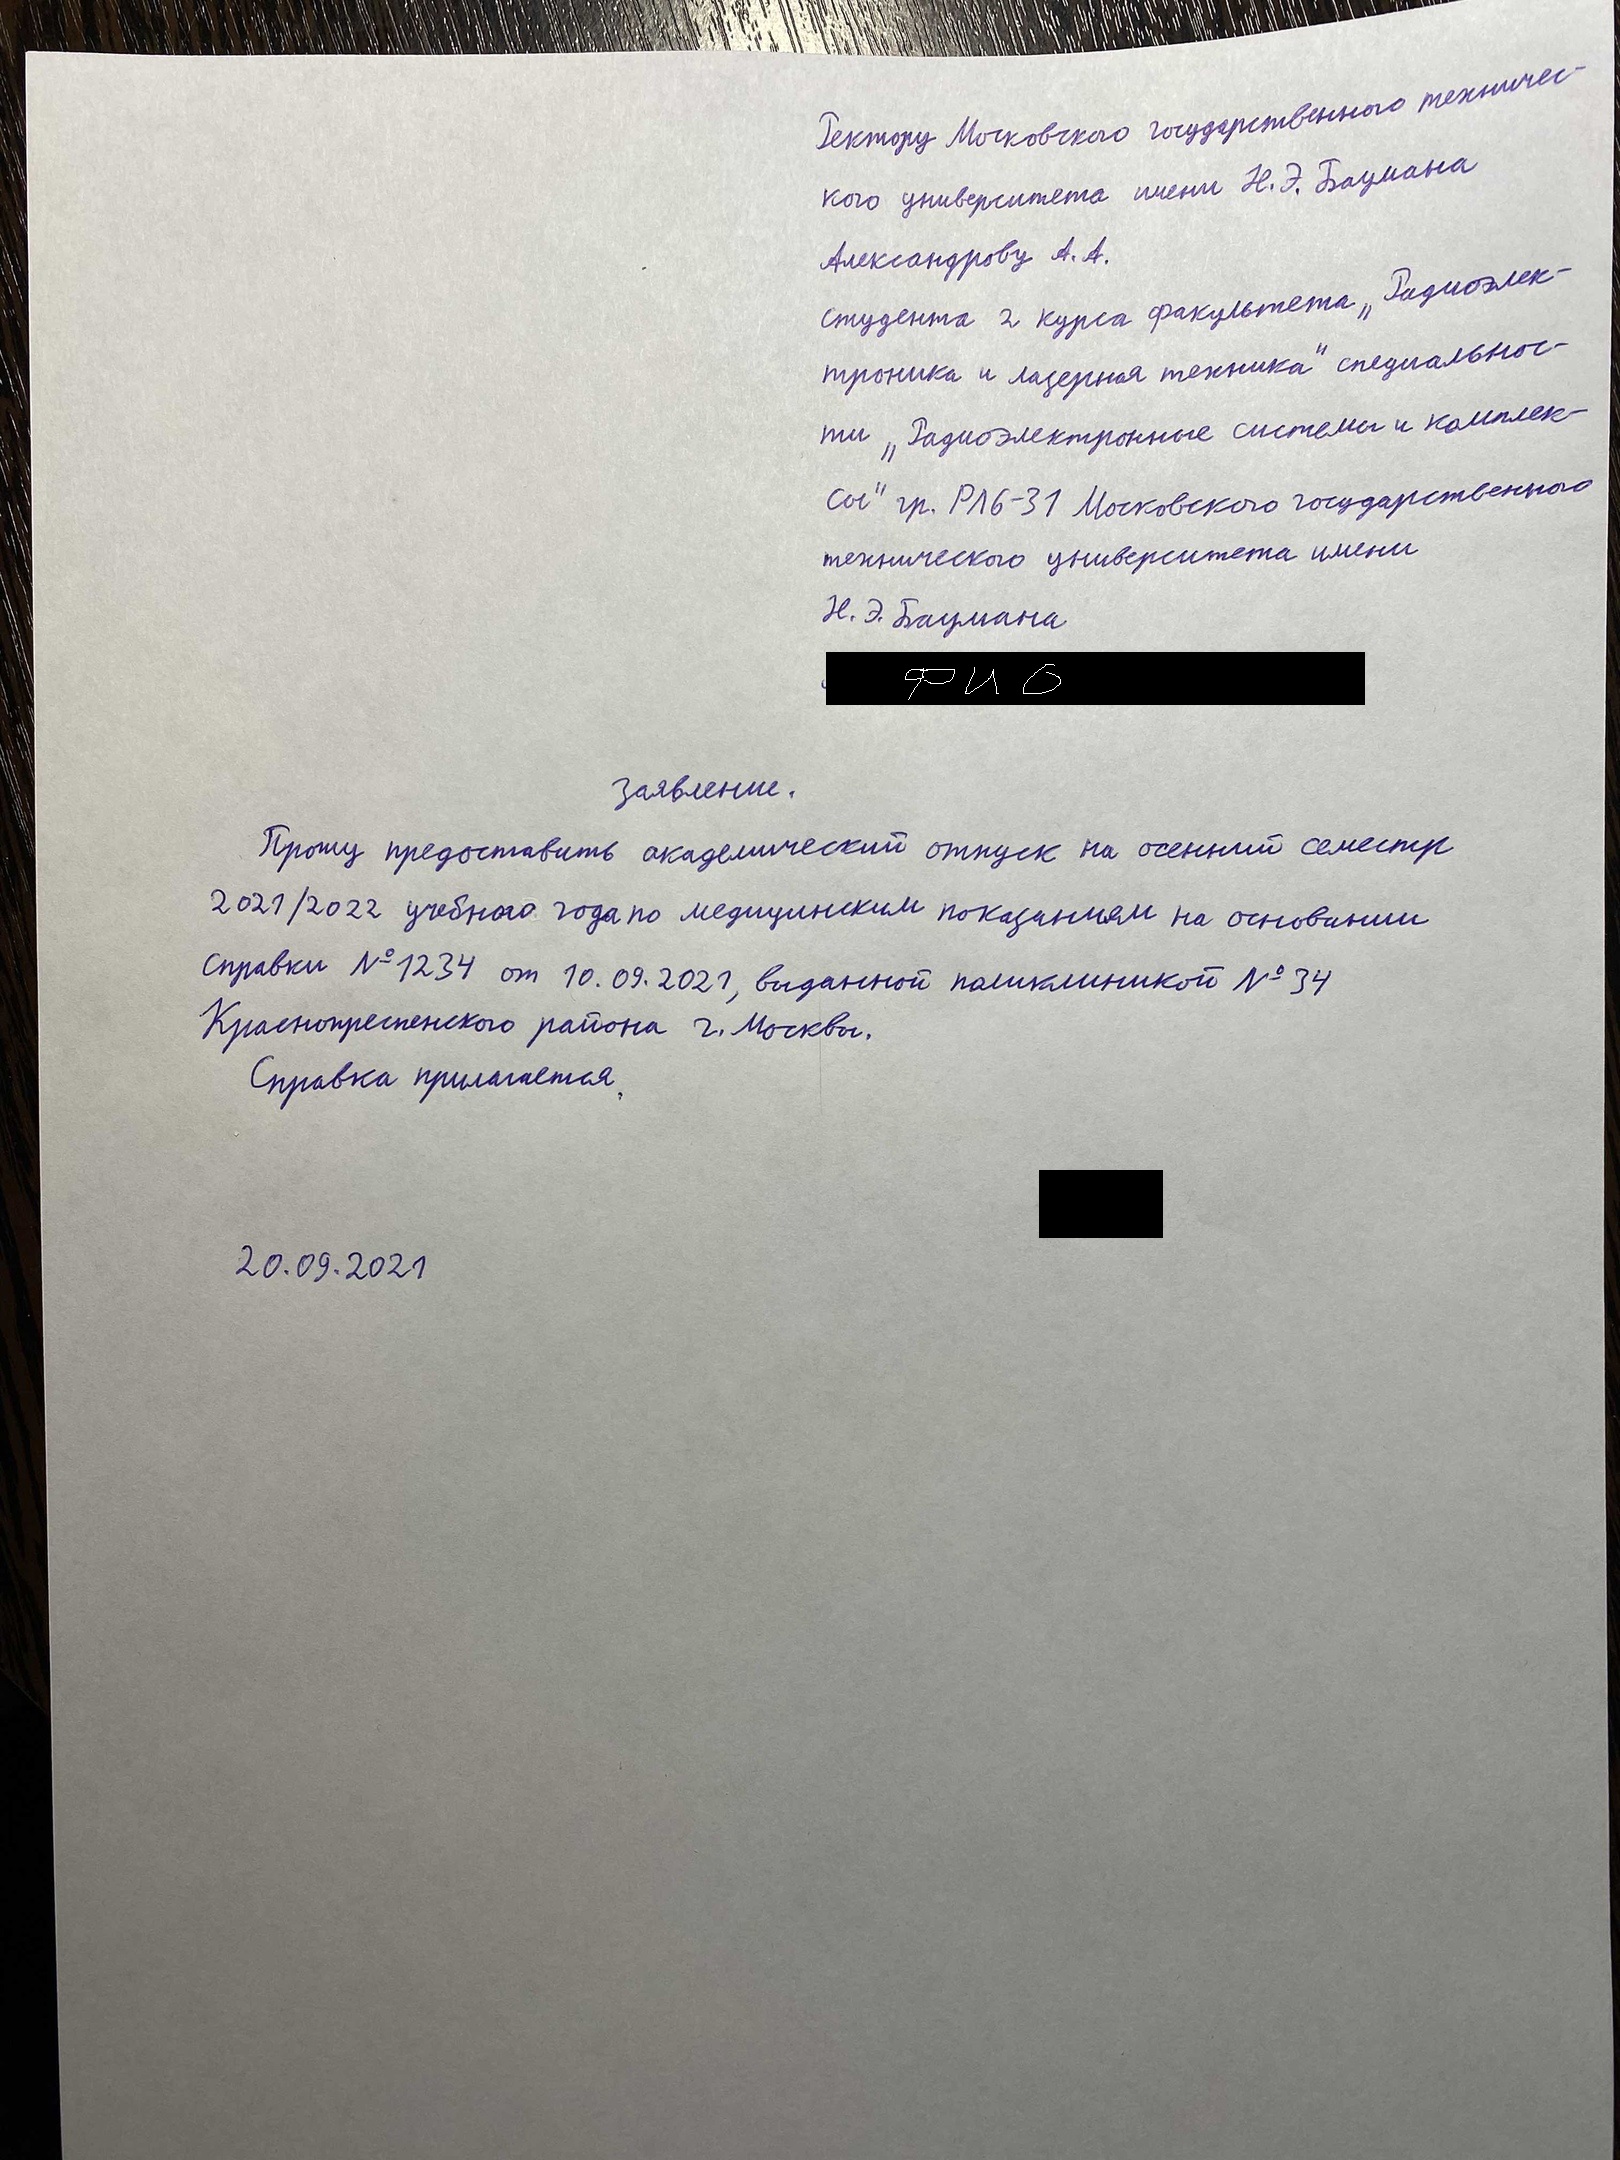 Ректору Московского государственного техничес-
кого университета имени Н.Э. Баумана
Александрову А.А.
студента 2 курса факультета „Радиоэлек-
троника и лазерная техника" специальнос-
ти „Радиоэлектронные системы и комплек-
сы" гр. РЛ6-31 Московского государственного
технического университета имени
Н.Э. Баумана
ФИО
Заявление.
Прошу предоставить академический отпуск на осенний семестр
2021/2022 учебного года по медицинским показаниям на основании
справки №1234 от 10.09.2021, выданной поликлиникой №34
Краснопресненского района г. Москвы.
Справка прилагается.
20.09.2021